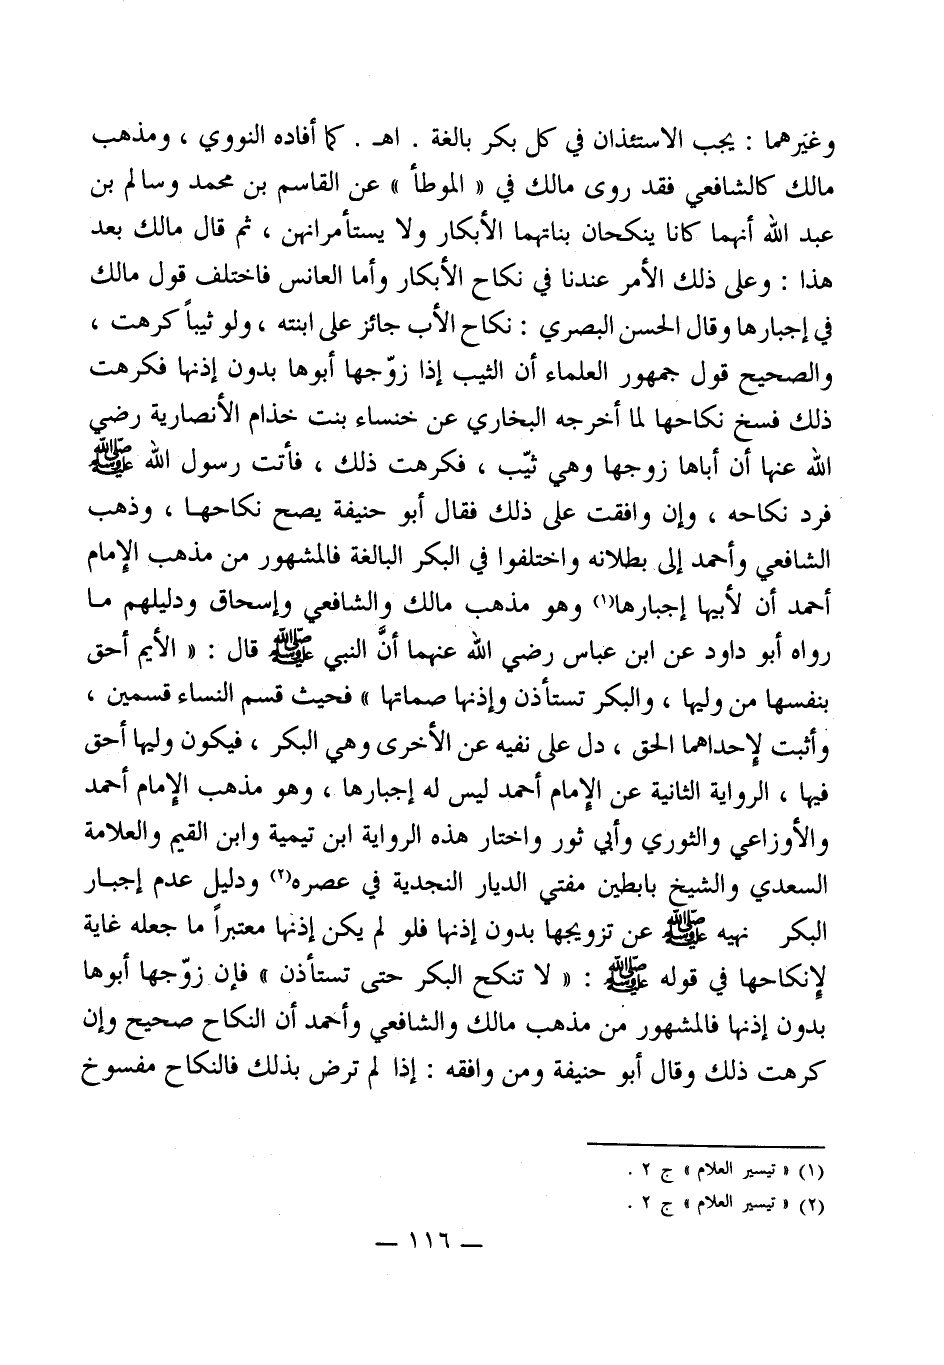 وغيَرهما : يجب الاستئذان في كل بكر بالغة . اهـ . كما أفاده النووي ، ومذهب
مالك كالشافعي فقد روى مالك في « الموطأ » عن القاسم بن محمد وسالم بن
عبد الله أنهما كانا ينكحان بناتهما الأبكار ولا يستأمرانهن ، ثم قال مالك بعد
هذا : وعلى ذلك الأمر عندنا في نكاح الأبكار وأما العانس فاختلف قول مالك
في إجبارها وقال الحسن البصري : نكاح الأب جائز على ابنته ، ولو ثيباً كرهت ،
والصحيح قول جمهور العلماء أن الثيب إذا زوّجها أبوها بدون إذنها فكرهت
ذلك فسخ نكاحها لما أخرجه البخاري عن خنساء بنت خذام الأنصارية رضي
الله عنها أن أباها زوجها وهي ثيّب ، فكرهت ذلك ، فأتت رسول الله ﷺ
فرد نكاحه ، وإن وافقت على ذلك فقال أبو حنيفة يصح نكاحها ، وذهب
الشافعي وأحمد إلى بطلانه واختلفوا في البكر البالغة فالمشهور من مذهب الإمام
أحمد أن لأبيها إجبارها(١) وهو مذهب مالك والشافعي وإسحاق ودليلهم ما
رواه أبو داود عن ابن عباس رضي الله عنهما أنَّ النبي ﷺ قال : « الأيم أحق
بنفسها من وليها ، والبكر تستأذن وإذنها صماتها » فحيث قسم النساء قسمين ،
وأثبت لإحداهما الحق ، دل على نفيه عن الأخرى وهي البكر ، فيكون وليها أحق
فيها ، الرواية الثانية عن الإمام أحمد ليس له إجبارها ، وهو مذهب الإمام أحمد
والأوزاعي والثوري وأبي ثور واختار هذه الرواية ابن تيمية وابن القيم والعلامة
السعدي والشيخ بابطين مفتي الديار النجدية في عصره(٢) ودليل عدم إجبار
البكر نهيه ﷺ عن تزويجها بدون إذنها فلو لم يكن إذنها معتبراً ما جعله غاية
لإنكاحها في قوله ﷺ : « لا تنكح البكر حتى تستأذن » فإن زوّجها أبوها
بدون إذنها فالمشهور من مذهب مالك والشافعي وأحمد أن النكاح صحيح وإن
كرهت ذلك وقال أبو حنيفة ومن وافقه : إذا لم ترض بذلك فالنكاح مفسوخ
(١) « تيسير العلام » ج ٢ .
(٢) « تيسير العلام » ج ٢ .
— ١١٦ —